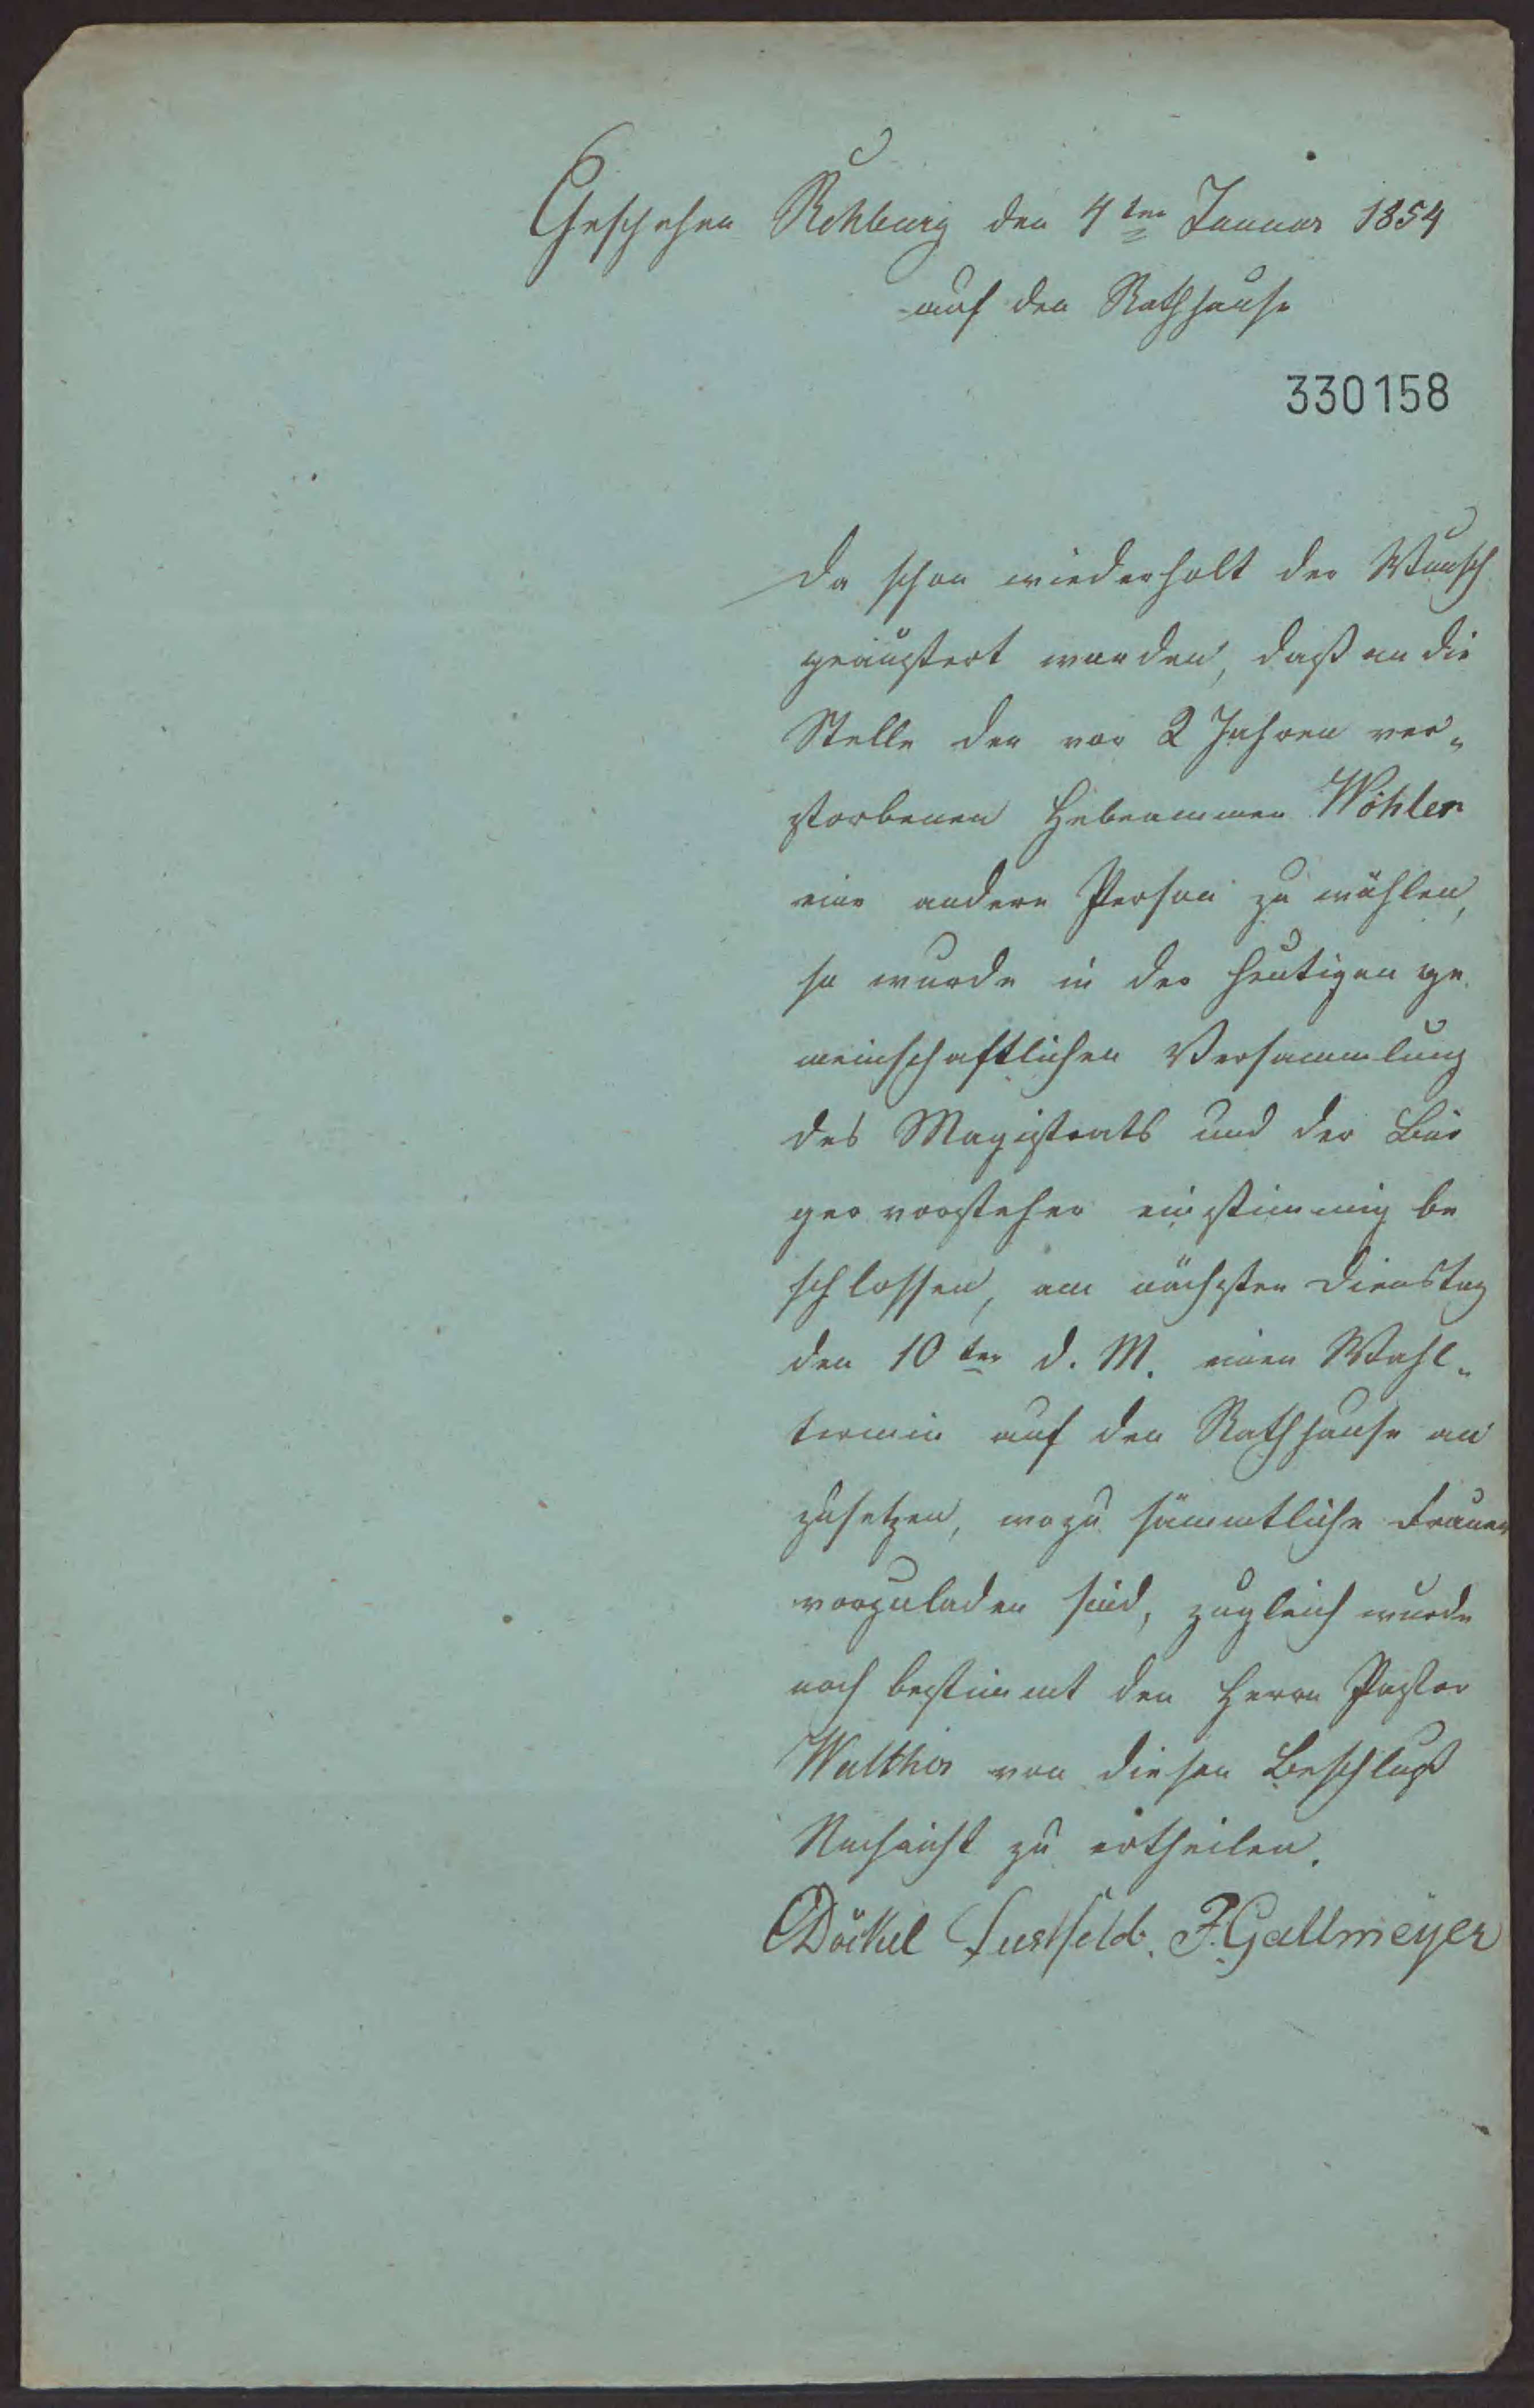 Geschehen Rehburg den 4ten Januar 1854
auf den Rathhause
330158
Da schon wiederholt der Wunsch
geäußert worden, daß an die
Stelle der vor 2 Jahren ver-
storbenen Hebeammen Wöhler
eine andere Person zu wählen,
so wurde in der heutigen ge
meinschaftlichen Versammlung
des Magistrats und der Bür
gervorsteher einstimmig be
schlossen, am nächsten Dienstag
den 10ten d. M. einen Wahl-
termin auf den Rathhause an
zusetzen, wozu sämmtliche Frauen
vorzuladen sind, zugleich wurde
noch bestimmt den Herrn Pastor
Walther von diesen Beschluß
Nachricht zu ertheilen.
Döckel Lustfeld. F. Gallmeyer